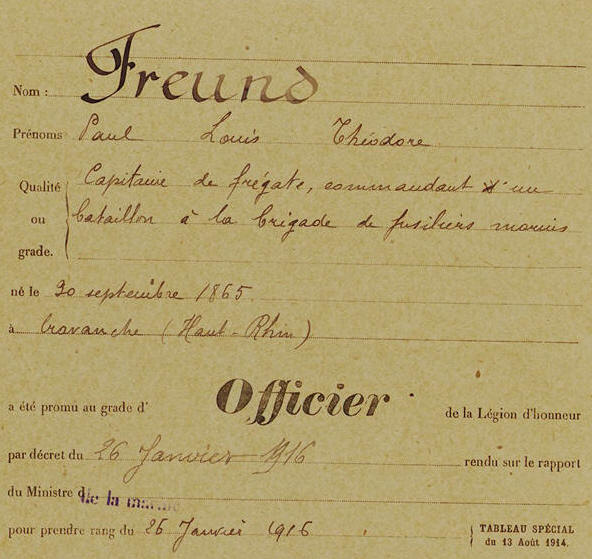 Nom : Freund
Prénoms Paul Louis Théodore
Qualité ou grade. Capitaine de frégate, commandant un
bataillon à la brigade de fusiliers marins
né le 30 septembre 1865
à Cravanche (Haut-Rhin)
a été promu au grade d' Officier de la Légion d'honneur
par décret du 26 Janvier 1916 rendu sur le rapport
du Ministre de la marine
pour prendre rang du 26 Janvier 1916
TABLEAU SPÉCIAL
du 13 Août 1914.